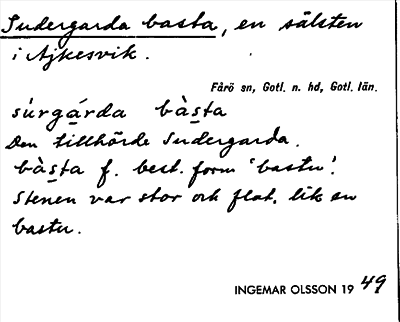 Sudergarda basta, en sälsten
i Ajkesvik.
Fårö sn, Gotl. n. hd, Gotl. län.
súrgárda bàsta
Den tillhörde Sudergarda.
bàsta f. best. form 'bastu'.
Stenen var stor och flat, lik en
bastu.
INGEMAR OLSSON 1949